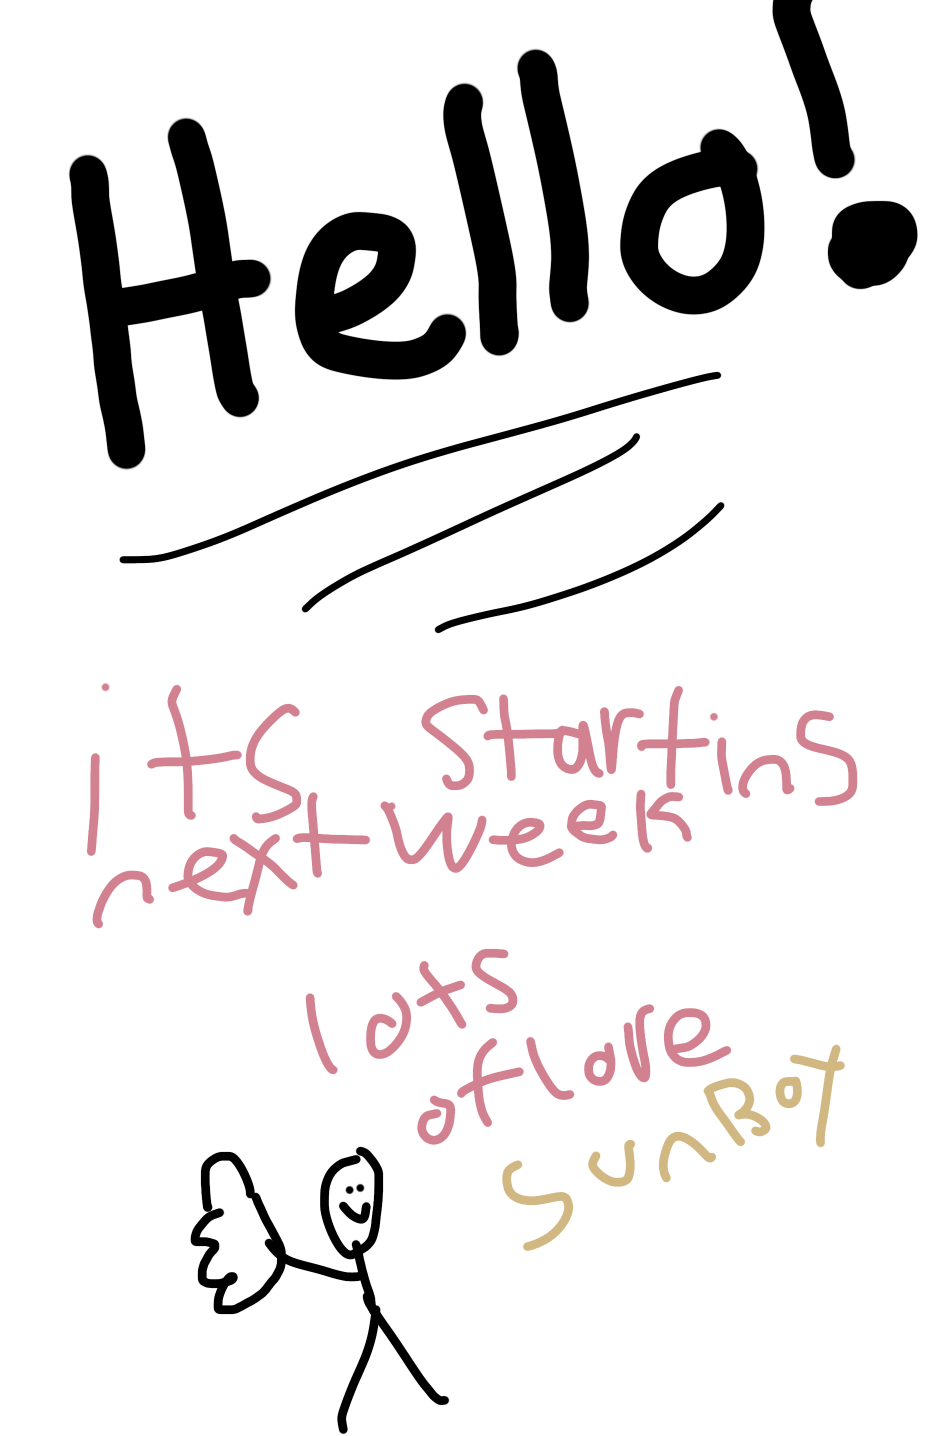 Hello!
its starting
next week
lots
of love
SunBoy